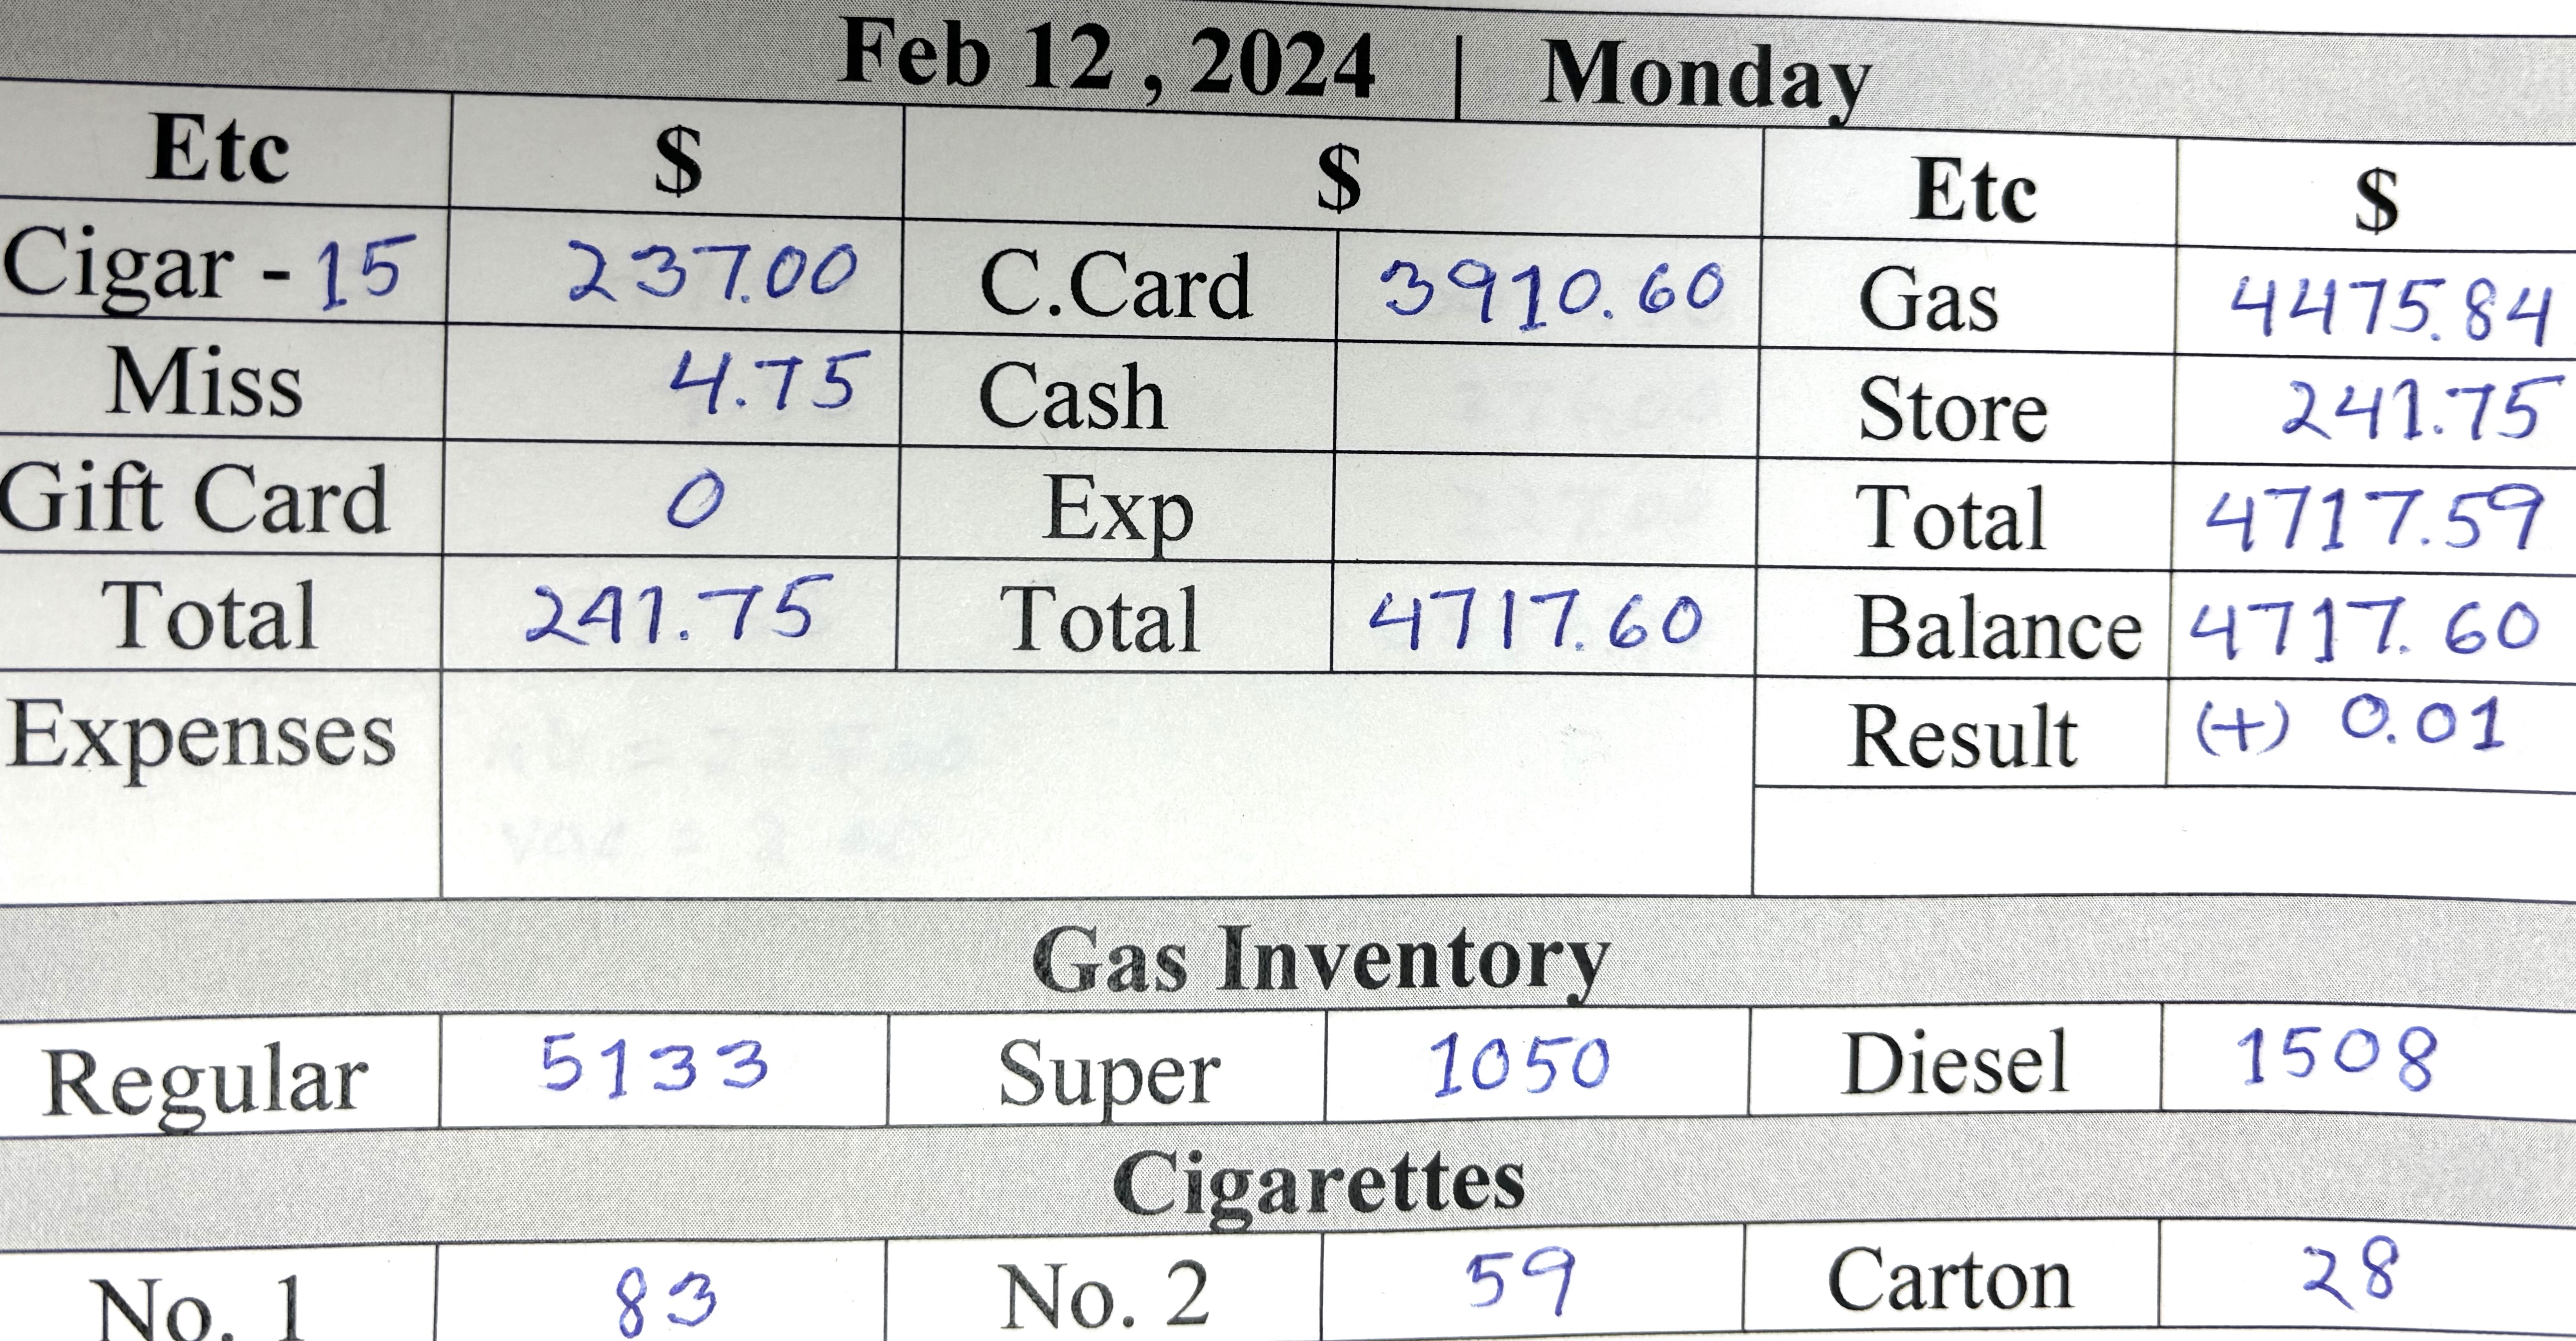 Feb 12 , 2024 | Monday
Etc $ $ Etc $
Cigar - 15 237.00 C.Card 3910.60 Gas 4475.84
Miss 4.75 Cash Store 241.75
Gift Card 0 Exp Total 4717.59
Total 241.75 Total 4717.60 Balance 4717.60
Expenses Result (+) 0.01
Gas Inventory
Regular 5133 Super 1050 Diesel 1508
Cigarettes
No. 1 83 No. 2 59 Carton 28